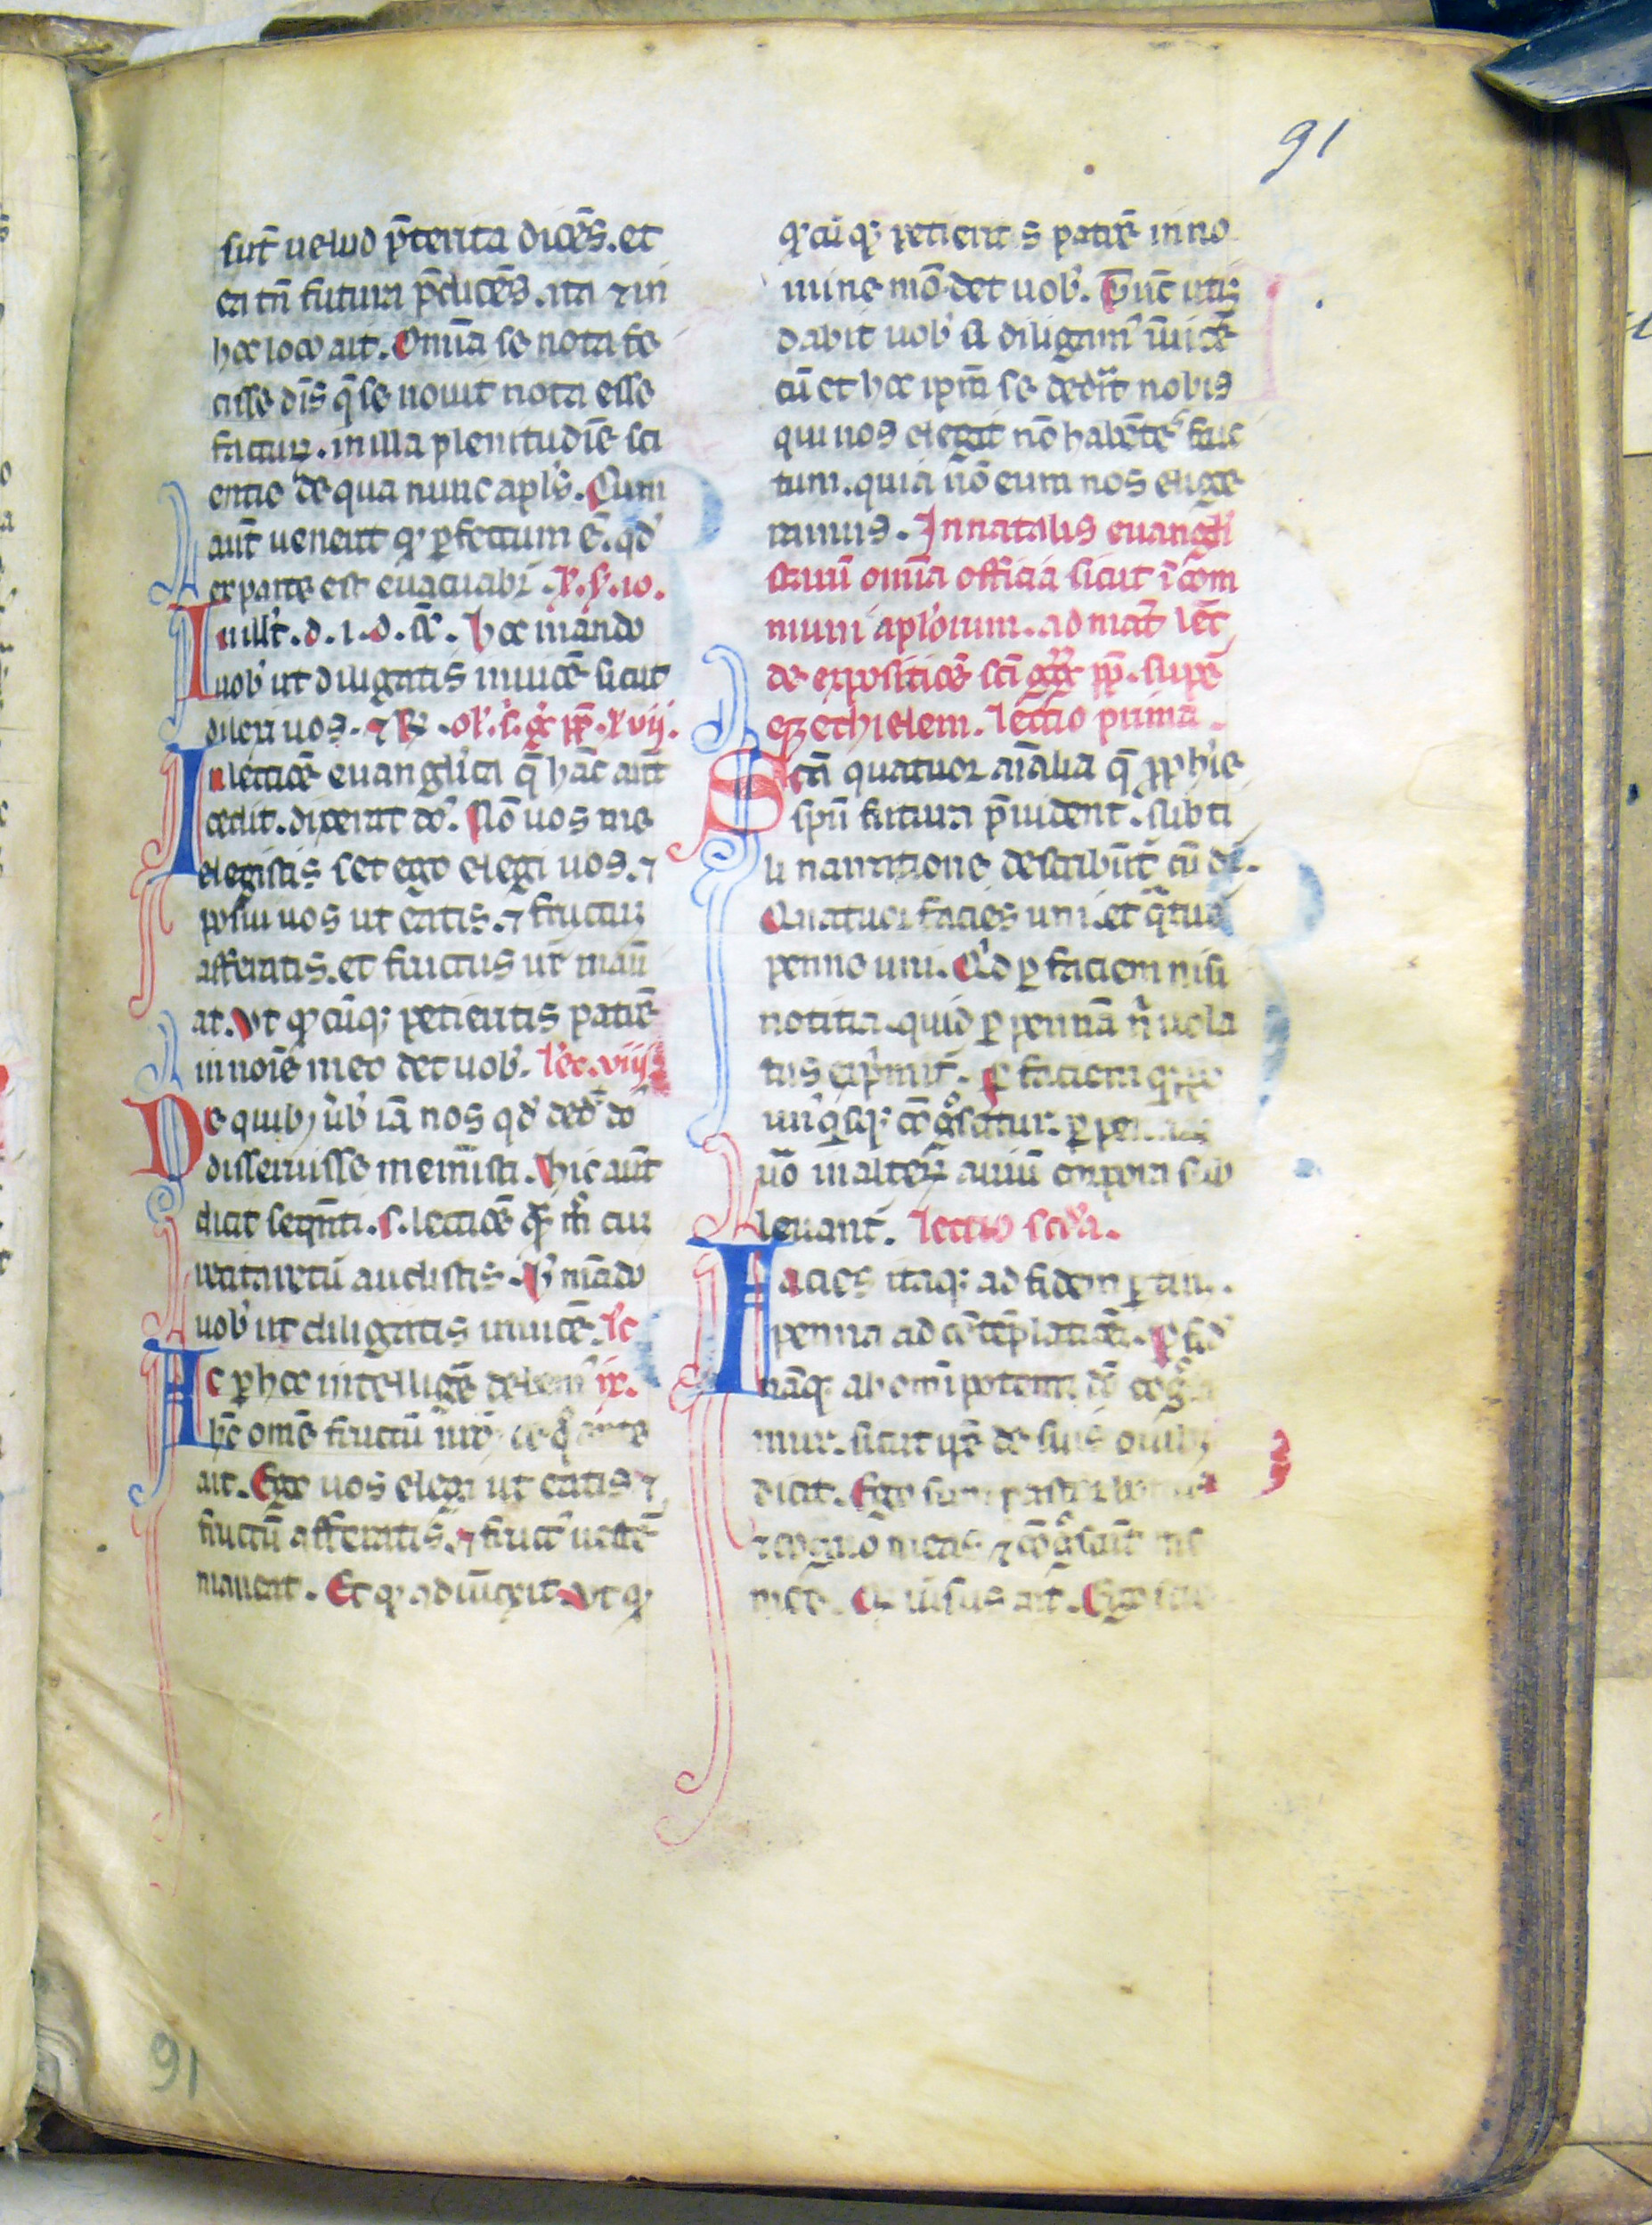 91
sut̄ uelud p̄terita dicēs. et
ea tn̄ futura p̄dicēs. ita ⁊ in
hoc loco ait. Omīa se nota fe
cisse dn̄s q̄ se nouit nota esse
factuꝝ. in illa plenitudīe sci
entie de qua nunc apl's. Cum
aut̄ uenerit qͦ ꝑfectum ē. qd'
ex parte est euacuabr̄
In ill'. d. i. d. s. Hoc mando
uob' ut diligatis inuicē sicut
dilexi uos. ⁊ R̄. xvij.
In lectiōe euanglīca q̄ hāc aut̄
cedit. dixerat do'. Nō uos me
elegistis set ego elegi uos. ⁊
posui uos ut eatis. ⁊ fructuꝝ
afferatis. et fructus ur̄ mane
at. Ut qͦcūq; petieritis patrē
in noīe meo det uob'. lec. viij.
De quib; ūb' iā nos qd' ded' do'
disseruisse memīsti. Hic aut̄
dicit seqn̄ti. s. lectiōe
auditis. H' mādo
uob' ut diligatis inuicē. lc
Ac ꝑ hoc intelligē debem' ix.
h̄c ē omē fructū nr̄ē
ait. Ego uos elegi ut eatis ⁊
fructū afferatis. ⁊ fruct' uester
maneat. Et qͦ adiūxit. Ut qͦ
qͦcūq; petieritis patrē in no
mine mō det uob'. Tūc utiq;
dabit uob' si diligam' inuicē
cū et hoc ipm̄ se dedr̄it nobis
qui nos elegit nō habētes fruc
tum. quia nō eum nos elige
ramus. In natalis euangl'i
starū omīa officia sicut ī com
muni apl'orum. ad mat̄ lect̄
de expositiōe sci gg pp̄. supē
ezechielem. lectio prima.
Scā quatuor aīalia q̄ ꝓphīe
spū futura p̄uident. subti
li narratione describūt̄ cū dr̄.
Quatuor facies uni. et q̄tuor
penne uni. Q'd ꝑ faciem nisi
notitia. quid ꝑ pennā n̄ uola
tus exp̄mit. ꝑ faciem
unq̄sq; cōgͦscitur. ꝑ pennas
uō in alteꝝ auiū corpora sub
leuant. lectio scd'a.
Facies itaq; ad fidem ꝑtin.
penna ad cōtēplatiōē. ꝑ fid'
nāq; ab omīpotenti dō cogͦ
mur. sicut ip̄e de suis ouib;
dicit. Ego sum pastor bonus
⁊ cognō meas ⁊ cōgͦscūt me
mee. Q' rursus ait. Ego scio
91